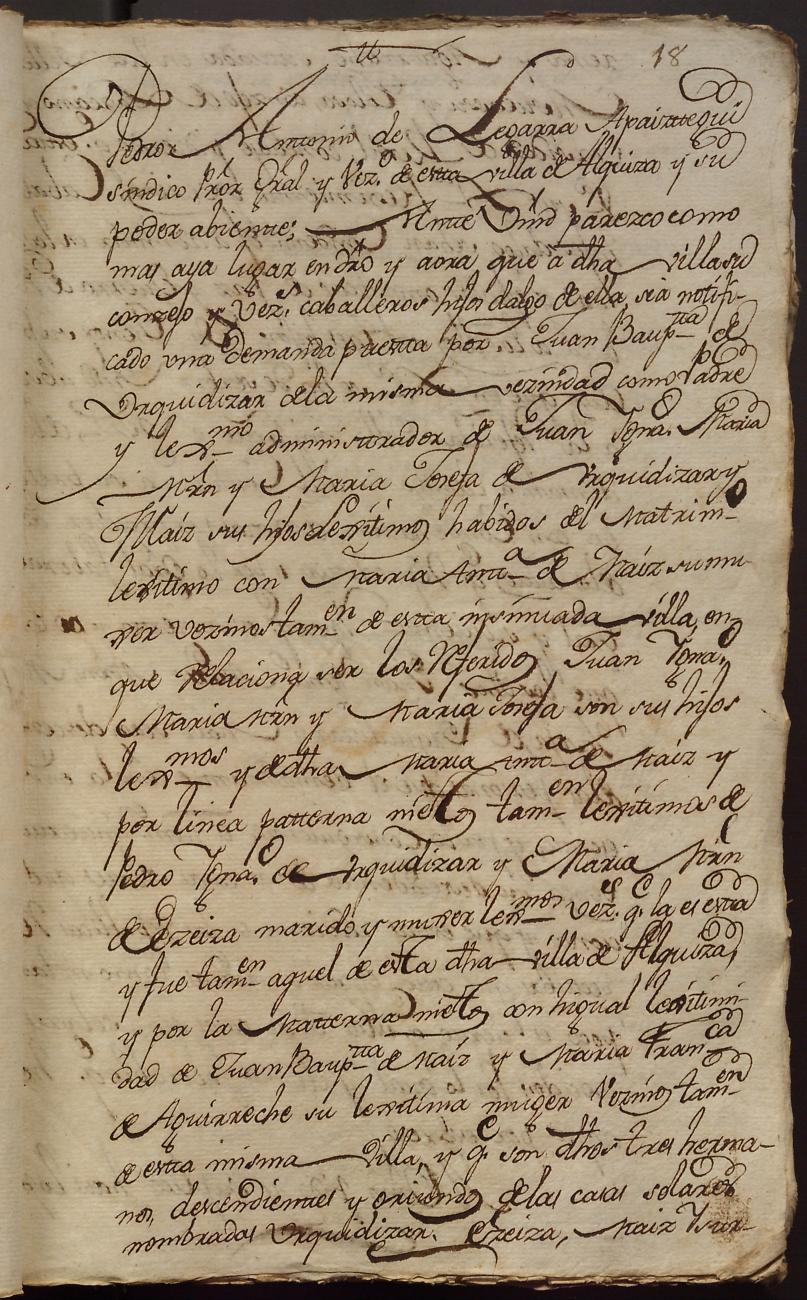 18
Pedro Antonio de Legarra Apaizttegui
sindico Prõr Gral y Vez.º de esta villa de Alquiza y su
poder abiente; Ante Vmd parezco como
mas aya lugar en dro y aora que â dha villa su
conzejo y Vez.s caballeros hijos dalgo de ella, se â notifi-
cado vna demanda puesta por Juan Baup-tta de
Vrquidizar de la misma vezindad como Padre
y lex-mo administrador de Juan Ygna.º Maria
Nrn y Maria Josefa de Vrquidizar y
Maiz sus hijos lexitimos habidos del Matrim-º
lexitimo con Maria Antt-a de Maiz su mu-
xer vezinos tam-en de esta insinuada villa, en
que relaciona ser los Referidos Juan Ygna.º
Maria Nrn y Maria Josefa son sus hijos
lex-mos y de dha Maria Antt-a de Maiz y
por linea patterna nietos tam-en lexitimos de
Pedro Ygna.º de Vrquidizar y Maria Nrn
de Ezeiza marido y muxer lex-mos vez.s q.e la es esta
y fue tam-en aquel de esta dha villa de Alquiza,
y por la Matterna nietos con higual lexitimi-
dad de Juan Baup-tta de Maiz y Maria Fran-ca
de Aguirreche su lexitima muger Vezinos tam-en
de esta misma Villa, y q.e son dhos tres herma-
nos, descendientes y oriundos de las casas solares
nombradas Vrquidizar, Ezeiza, Maiz